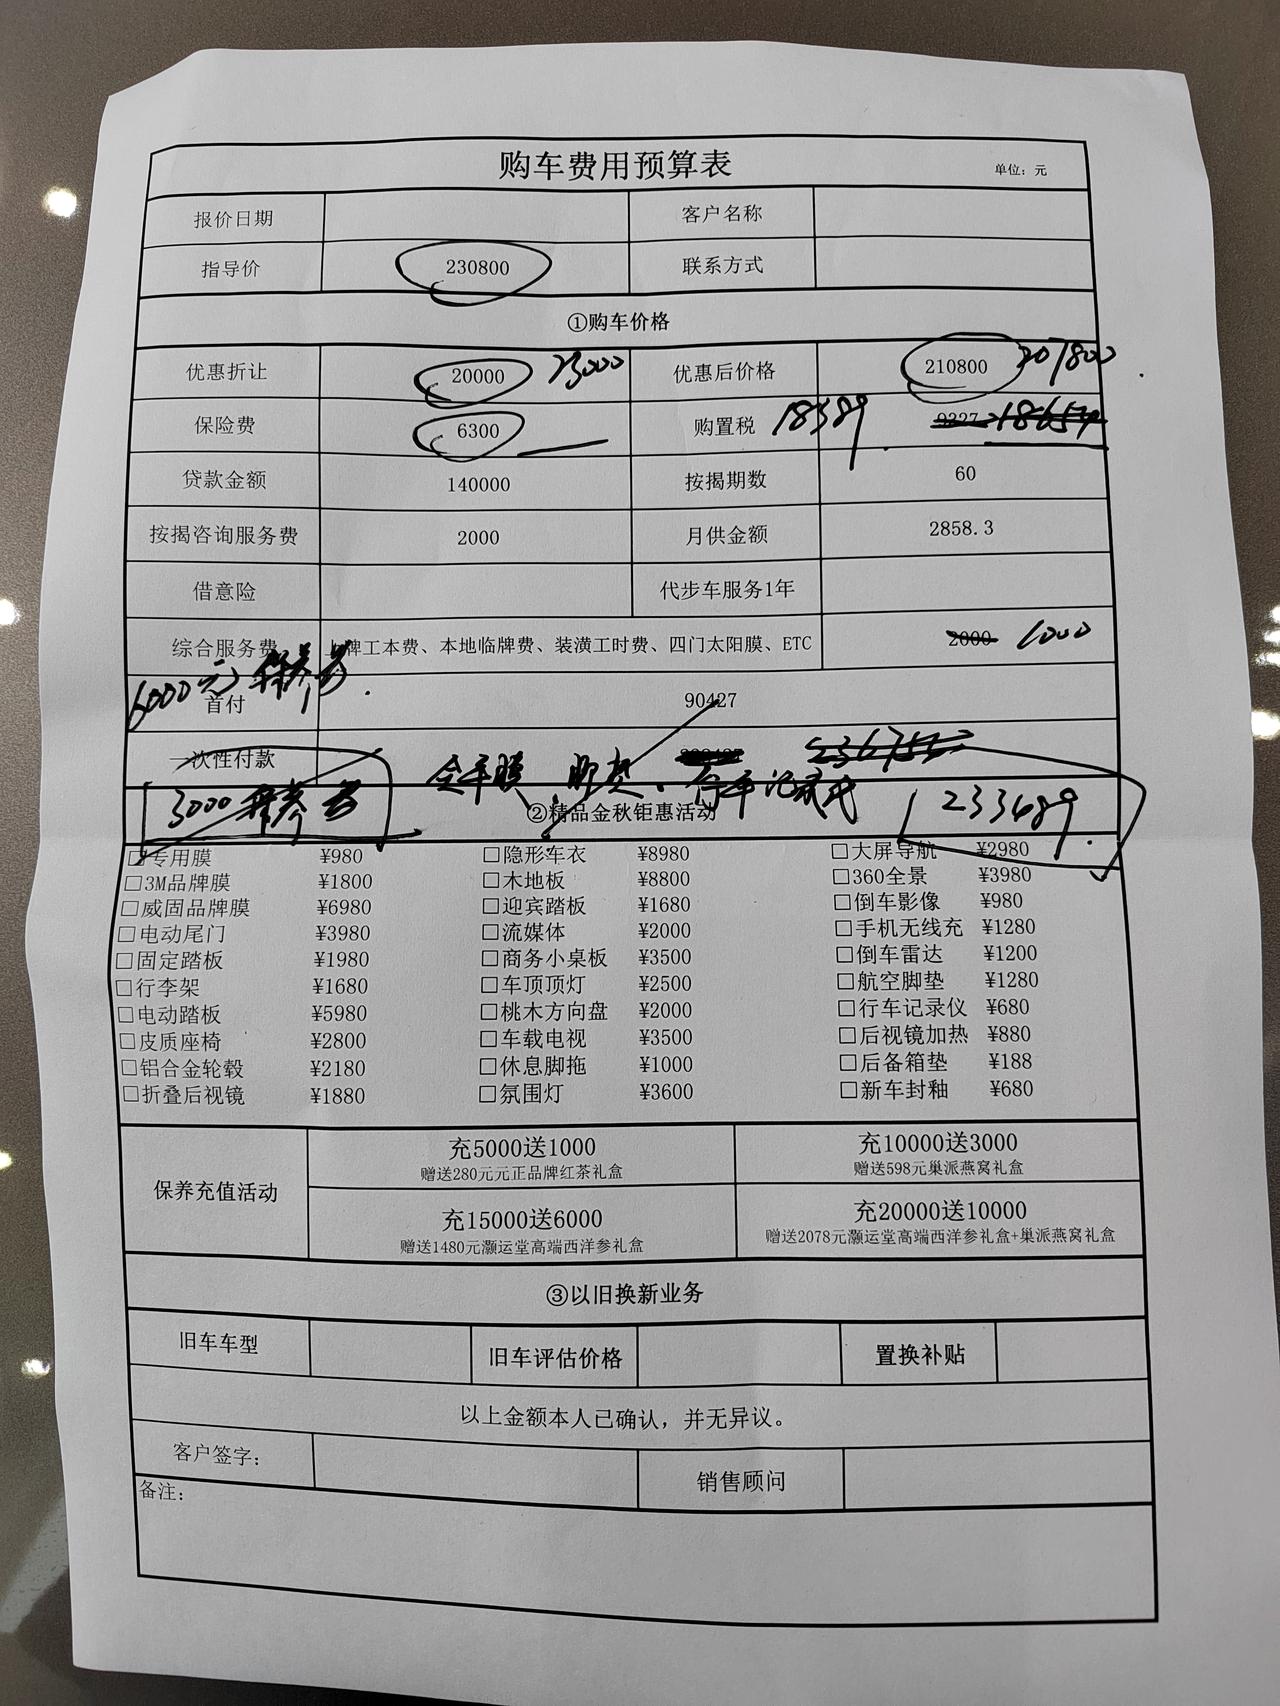 购车费用预算表 单位：元
报价日期 客户名称
指导价 230800 联系方式
①购车价格
优惠折让 20000 23000 优惠后价格 210800 207800
保险费 6300 购置税 18389 9327 18654
贷款金额 140000 按揭期数 60
按揭咨询服务费 2000 月供金额 2858.3
借意险 代步车服务1年
综合服务费 上牌工本费、本地临牌费、装潢工时费、四门太阳膜、ETC 2000 1000
6000元保养券
首付 90427
一次性付款 236754
3000保养券 全车膜、脚垫、行车记录仪 233489
②精品金秋钜惠活动
□专用膜 ¥980 □隐形车衣 ¥8980 □大屏导航 ¥2980
□3M品牌膜 ¥1800 □木地板 ¥8800 □360全景 ¥3980
□威固品牌膜 ¥6980 □迎宾踏板 ¥1680 □倒车影像 ¥980
□电动尾门 ¥3980 □流媒体 ¥2000 □手机无线充 ¥1280
□固定踏板 ¥1980 □商务小桌板 ¥3500 □倒车雷达 ¥1200
□行李架 ¥1680 □车顶顶灯 ¥2500 □航空脚垫 ¥1280
□电动踏板 ¥5980 □桃木方向盘 ¥2000 □行车记录仪 ¥680
□皮质座椅 ¥2800 □车载电视 ¥3500 □后视镜加热 ¥880
□铝合金轮毂 ¥2180 □休息脚拖 ¥1000 □后备箱垫 ¥188
□折叠后视镜 ¥1880 □氛围灯 ¥3600 □新车封釉 ¥680
保养充值活动
充5000送1000 充10000送3000
赠送280元元正品牌红茶礼盒 赠送598元巢派燕窝礼盒
充15000送6000 充20000送10000
赠送1480元灏运堂高端西洋参礼盒 赠送2078元灏运堂高端西洋参礼盒+巢派燕窝礼盒
③以旧换新业务
旧车车型 旧车评估价格 置换补贴
以上金额本人已确认，并无异议。
客户签字： 销售顾问
备注：